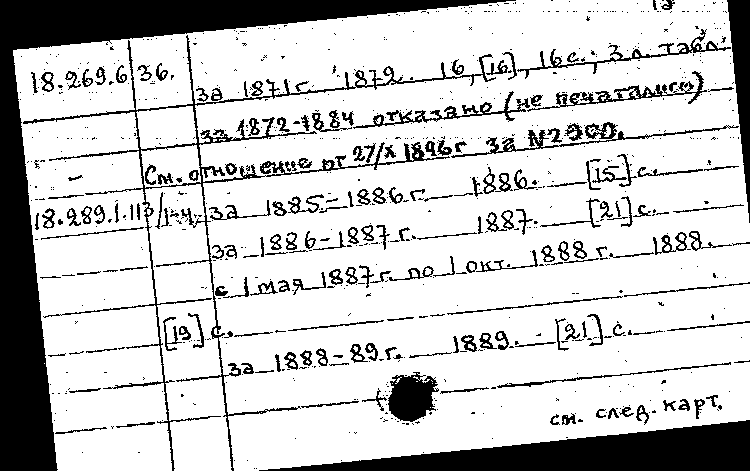 18.269.6 36. за 1871 г. 1872. 16, [16], 16 с.; 3 л. табл.
за 1872-1884 отказано (не печатались)
— См. отношение от 27/X 1896 г за №
18.289.1.113/1-4, за 1885-1886 г. 1886. [15] с.
за 1886-1887 г. 1887. [21] с.
с 1 мая 1887 г. по 1 окт. 1888 г. 1888.
[19] с.
за 1888-89 г. 1889. - [21] с.
см. след. карт.